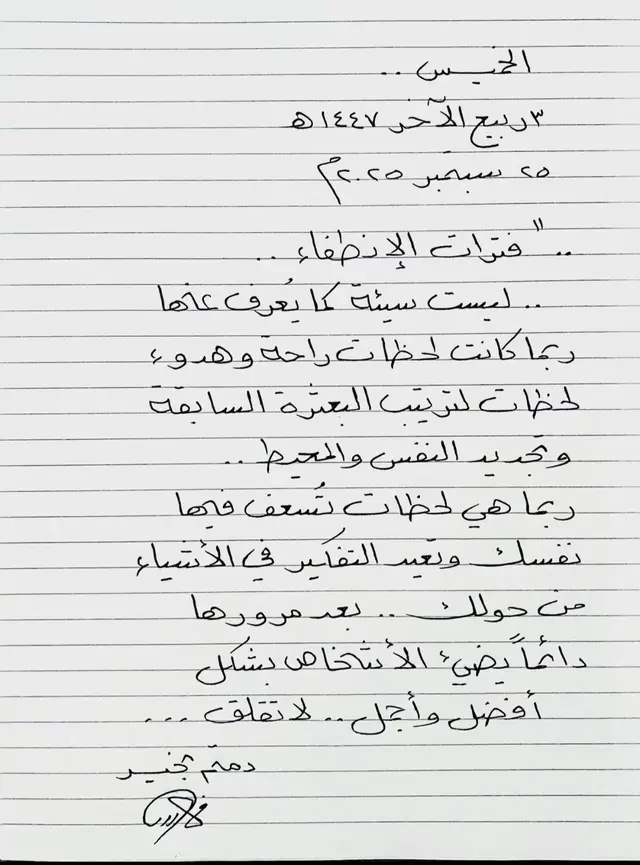 الخميس ..
٣ ربيع الآخر ١٤٤٧ هـ
٢٥ سبتمبر ٢٠٢٥ م
.. " فترات الإنطفاء ..
.. ليست سيئة كما يُعرف عنها
ربما كانت لحظات راحة وهدوء
لحظات لترتيب البعثرة السابقة
وتجديد النفس والمحيط ..
ربما هي لحظات تُسعف فيها
نفسك وتعيد التفكير في الأشياء
من حولك .. بعد مرورها
دائماً يضيء الأشخاص بشكل
أفضل وأجمل .. لا تقلق ...
دمتم بخير